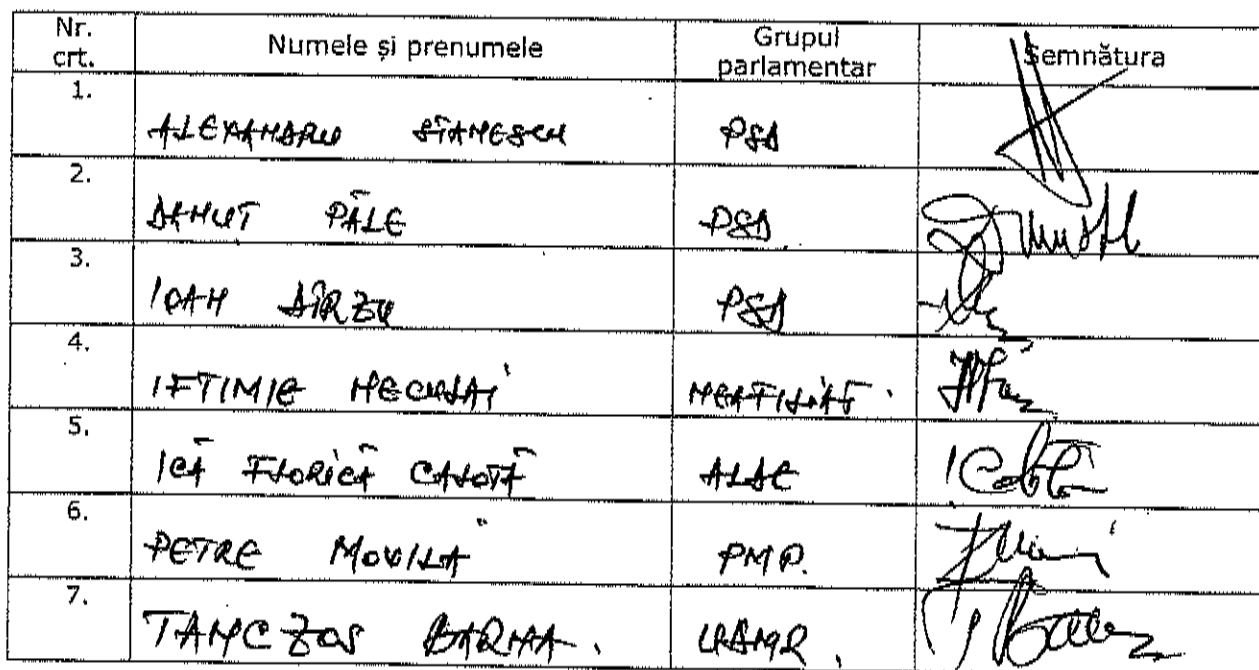 Nr. crt. Numele și prenumele Grupul parlamentar Semnătura
1. ALEXANDRU STANESCU PSD
2. DANUT PĂLE PSD
3. IOAN DÎRZU PSD
4. IFTIMIE NECULAI NEAFILIAT
5. ICĂ FLORICĂ CALOTĂ ALDE
6. PETRE MOVILĂ PMP.
7. TANCZOS BARNA. UDMR.